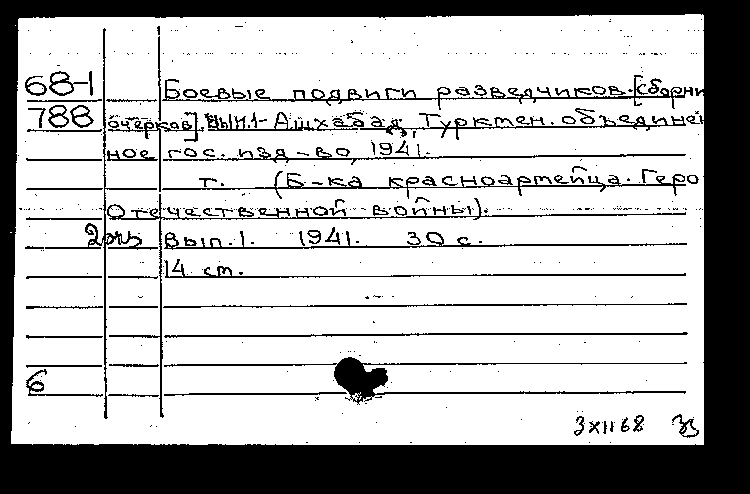 68-1 Боевые подвиги разведчиков.[Сборни
788 очерков]. Вып.1- Ашхабад, Туркмен. объединен
ное гос. изд-во, 1941.
т. (Б-ка красноармейца. Геро
Отечественной войны).
2 экз Вып.1. 1941. 30 с.
14 см.
6
3 XII 68